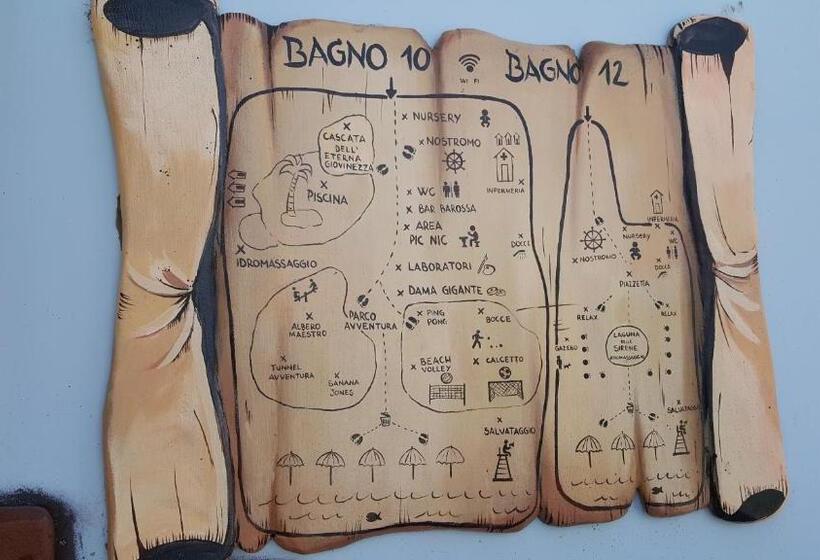 BAGNO 10
WI FI
BAGNO 12
NURSERY
CASCATA
DELL'
ETERNA
GIOVINEZZA
NOSTROMO
INFERMERIA
PISCINA
WC
BAR BAROSSA
AREA
PIC NIC
DOCCE
IDROMASSAGGIO
LABORATORI
DAMA GIGANTE
PARCO
AVVENTURA
ALBERO
MAESTRO
TUNNEL
AVVENTURA
BANANA
JONES
PING
PONG
BOCCE
BEACH
VOLLEY
CALCETTO
SALVATAGGIO
INFERMERIA
NURSERY
WC
NOSTROMO
DOCCE
PIAZZETTA
RELAX
RELAX
LAGUNA
DELLE
SIRENE
IDROMASSAGGIO
GAZEBO
SALVATAGGIO